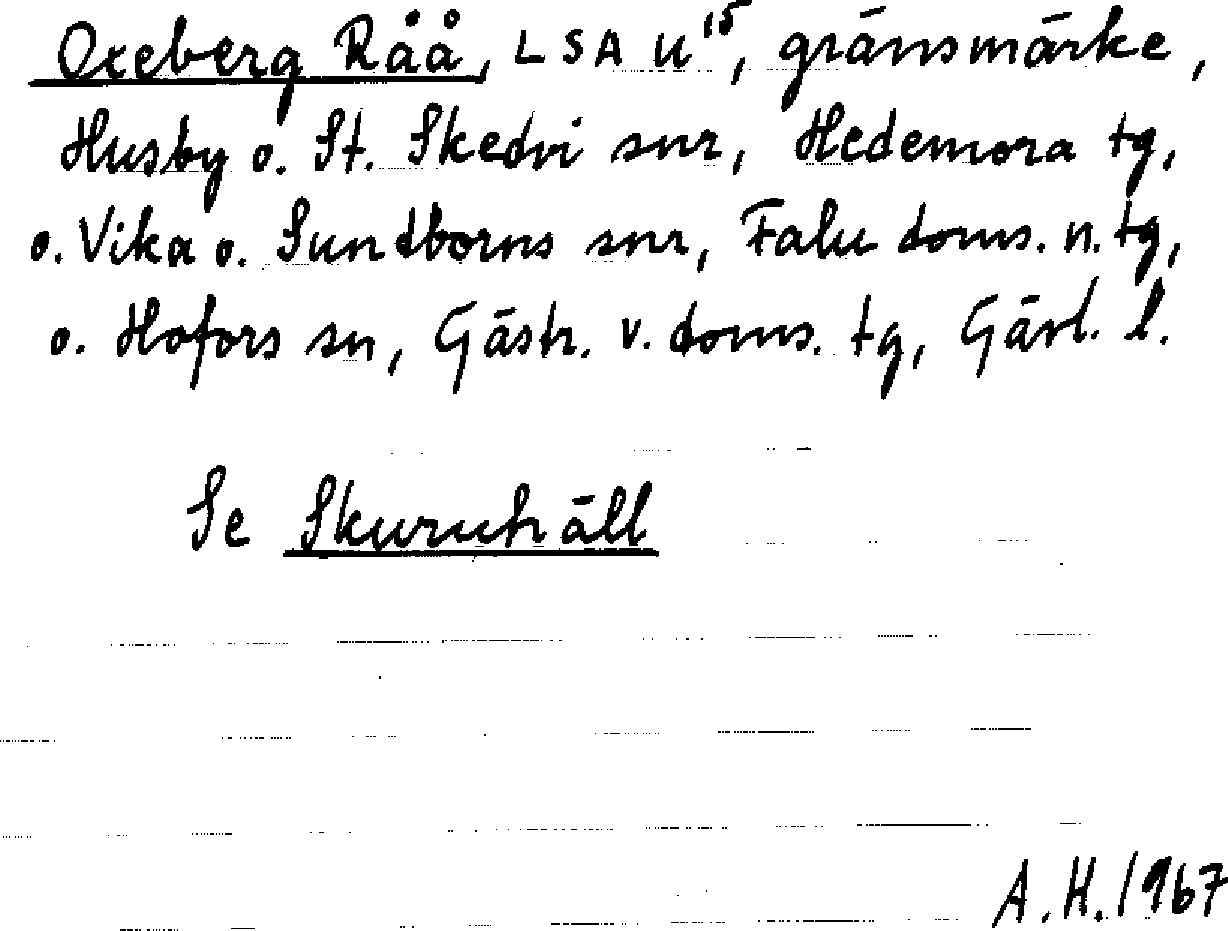 Oxeberg Råå, LSA U¹⁵, gränsmärke,
Husby o. St. Skedvi snr, Hedemora tg,
o. Vika o. Sundborns snr, Falu doms. n. tg,
o. Hofors sn, Gästr. v. doms. tg, Gävl. l.
Se Skuruhäll
A.H. 1967